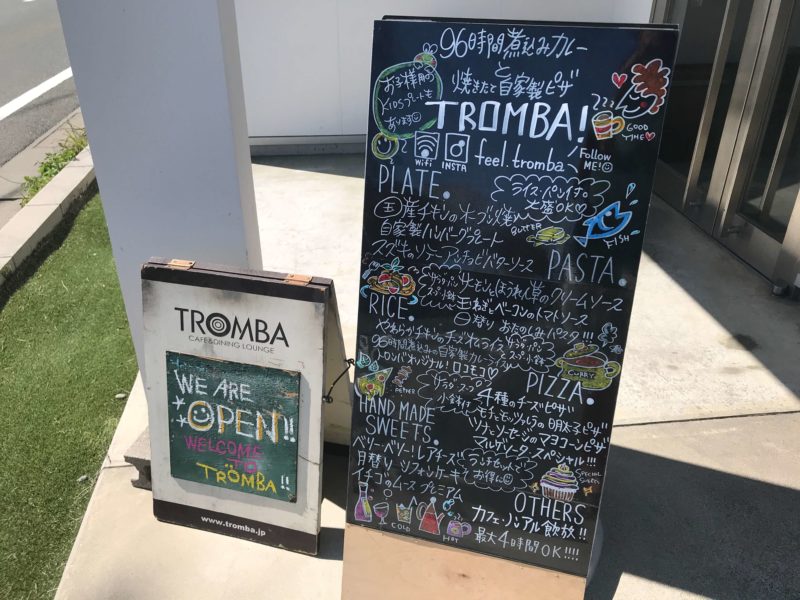 96時間煮込みカレー
と
焼きたて自家製ピザ
お子様用の
KIDSプレートも
あります
TROMBA!
GOOD
TIME
Wifi
INSTA
feel.tromba
Follow
ME!
PLATE.
ライス・パンイチ。
大盛OK
国産チキンのオーブン焼
自家製ハンバーグプレート
BUTTER
FISH
PASTA.
サーモンとほうれん草のクリームソース
玉ねぎとベーコンのトマトソース
日替り おたのしみパスタ!!!
RICE.
やわらかチキンのチーズ
96時間煮込みの自家製カレー
トロンバオリジナル!ロコモコ
CURRY
PIZZA.
4種のチーズピザ
の明太子ピザ
ツナとソーセージのマヨコーンピザ
スペシャル!!!
HAND MADE
SWEETS.
ベリーベリー!レアチーズ
月替り シフォンケーキ
イチゴのムース プレミアム
ランチセットで
お得
SPECIAL
SWEETS
COLD
HOT
OTHERS
カフェ・ソ・アル飲放!!
最大4時間OK!!!!
TROMBA
CAFE&DINING LOUNGE
WE ARE
OPEN!!
WELCOME
TO
TROMBA!!
www.tromba.jp